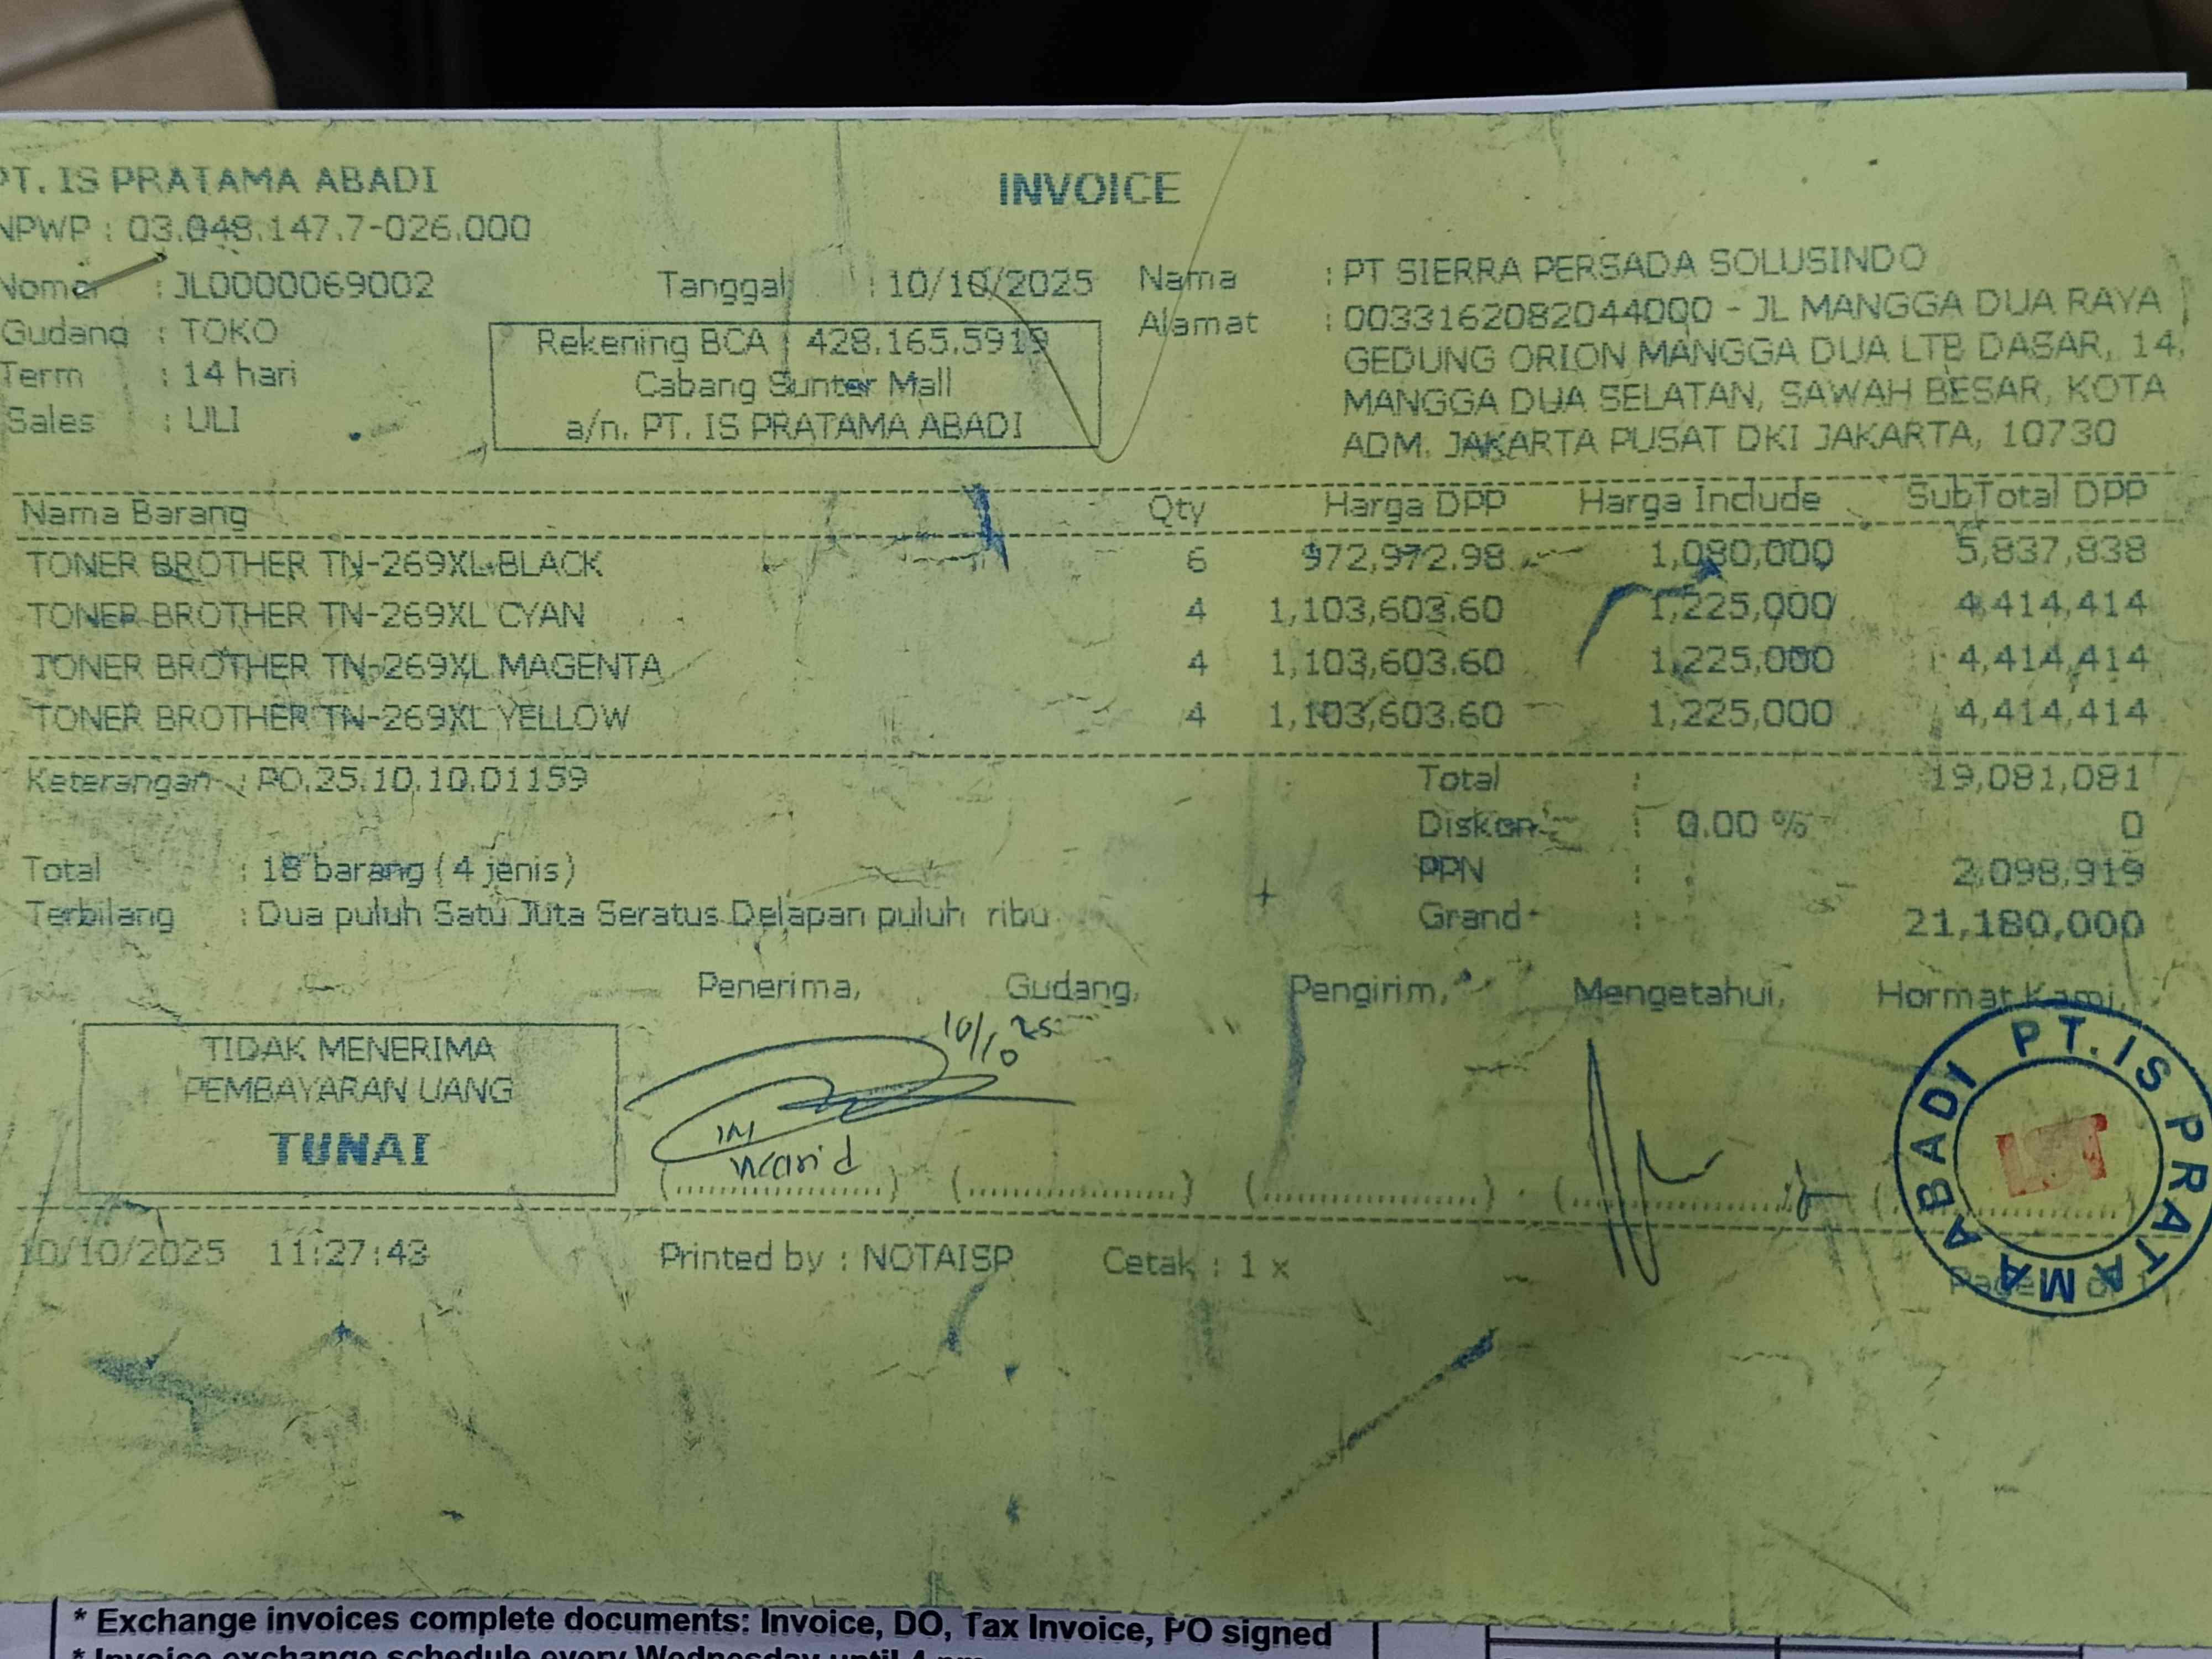 PT. IS PRATAMA ABADI
INVOICE
NPWP : 03.048.147.7-026.000
Nomor : JL0000069002
Tanggal : 10/10/2025
Nama : PT SIERRA PERSADA SOLUSINDO
Gudang : TOKO
Alamat : 0033162082044000 - JL MANGGA DUA RAYA
GEDUNG ORION MANGGA DUA LTB DASAR, 14,
MANGGA DUA SELATAN, SAWAH BESAR, KOTA
ADM. JAKARTA PUSAT DKI JAKARTA, 10730
Term : 14 hari
Sales : ULI
Rekening BCA : 428.165.5919
Cabang Sunter Mall
a/n. PT. IS PRATAMA ABADI
Nama Barang Qty Harga DPP Harga Include SubTotal DPP
TONER BROTHER TN-269XL BLACK 6 972,972.98 1,080,000 5,837,838
TONER BROTHER TN-269XL CYAN 4 1,103,603.60 1,225,000 4,414,414
TONER BROTHER TN-269XL MAGENTA 4 1,103,603.60 1,225,000 4,414,414
TONER BROTHER TN-269XL YELLOW 4 1,103,603.60 1,225,000 4,414,414
Keterangan : PO.25.10.10.01159
Total : 19,081,081
Diskon : 0.00 % 0
Total : 18 barang ( 4 jenis )
PPN : 2,098,919
Terbilang : Dua puluh Satu Juta Seratus Delapan puluh ribu
Grand : 21,180,000
Penerima, Gudang, Pengirim, Mengetahui, Hormat Kami,
TIDAK MENERIMA
PEMBAYARAN UANG
TUNAI
10/10 25
PT. IS PRATAMA ABADI
10/10/2025 11:27:43 Printed by : NOTAISP Cetak : 1 x
* Exchange invoices complete documents: Invoice, DO, Tax Invoice, PO signed
* Invoice exchange schedule every Wednesday until 4 pm